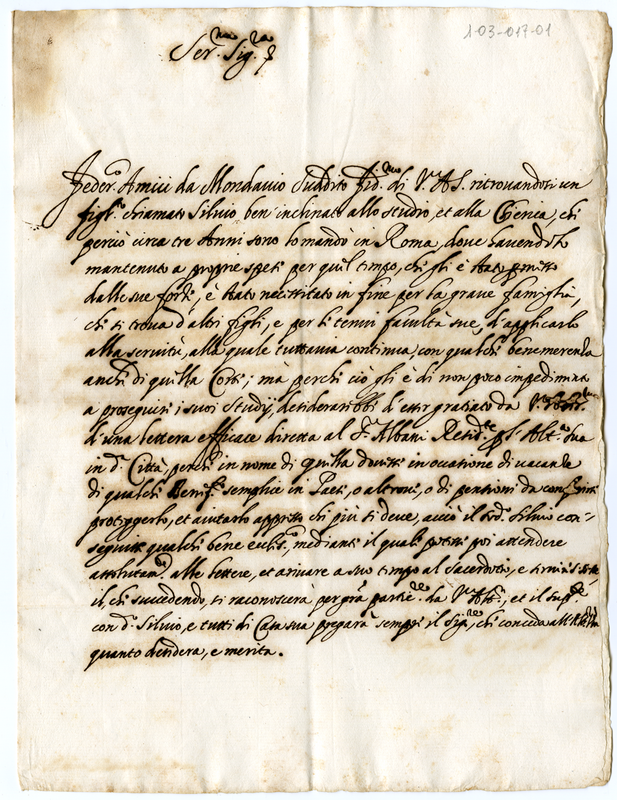 1-03-017-01
Ser.mo Sig.re
Feder.o Amici da Mondavio Suddito fid.mo di V.A.S. ritrovandosi un
figl.o chiamato Silvio ben inclinato allo studio, et alla Chierica, che
perciò circa tre Anni sono lo mandò in Roma, dove havendolo
mantenuto a proprie spese per quel tempo, che gli è stato permesso
dalle sue forze, è stato necessitato in fine per la grave famiglia,
che si trova d'altri figli, e per le tenui facultà sue, d'applicarlo
alla servitù, alla quale tuttavia continua, con qualche benemerenza
anche di quella Corte; mà perche ciò gli è di non poco impedimento
a proseguire i suoi studij, desiderarebbe d'esser gratiato da
d'una lettera efficace diretta al S.re Albani Resid.te p S. Alt.a sua
in d.a Città, perche in nome di quella dovesse in occasione di vacanze
di qualche Benef.o semplice in Paesi, o altrove, o di pensioni da
proteggerlo, et aiutarlo appresso chi più si deve, acciò il sud.o Silvio con=
seguisse qualche bene eccles.o mediante il quale potesse poi attendere
assolutam.te alle lettere, et arivare a suo tempo al Sacerdotio, e
il che succedendo, si raconoscerà per gra partic.re da V.A. et il Sup.te
con d.o Silvio, e tutti di Casa sua pregarà sempre il Sig.re che conceda
quanto desidera, e merita.